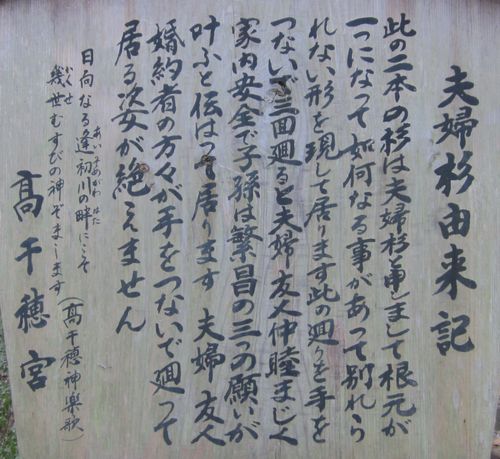 夫婦杉由来記
此の二本の杉は夫婦杉と申しまして根元が
一つになって如何なる事があって別れら
れない形を現して居ります此の廻りを手を
つないで三回廻ると夫婦友人仲睦まじく
家内安全で子孫は繁昌の三つの願いが
叶ふと伝はって居ります 夫婦 友人
婚約者の方々が手をつないで廻って
居る姿が絶えません
日向なる逢初川の畔にこそ
あいそめがわ はた
幾世むすびの神ぞまします(高千穂神楽歌)
いくせ
髙千穂宮